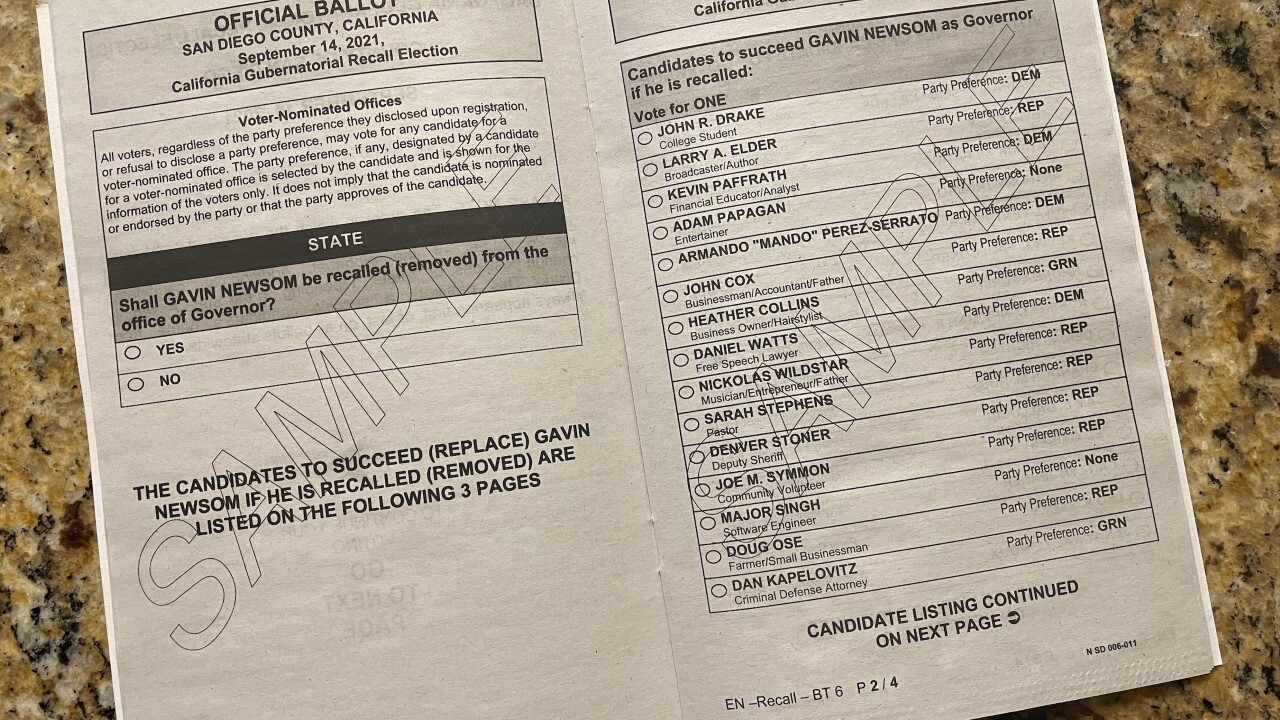 OFFICIAL BALLOT
SAN DIEGO COUNTY, CALIFORNIA
September 14, 2021,
California Gubernatorial Recall Election
Voter-Nominated Offices
All voters, regardless of the party preference they disclosed upon registration,
or refusal to disclose a party preference, may vote for any candidate for a
voter-nominated office. The party preference, if any, designated by a candidate
for a voter-nominated office is selected by the candidate and is shown for the
information of the voters only. It does not imply that the candidate is nominated
or endorsed by the party or that the party approves of the candidate.
STATE
Shall GAVIN NEWSOM be recalled (removed) from the
office of Governor?
YES
NO
THE CANDIDATES TO SUCCEED (REPLACE) GAVIN
NEWSOM IF HE IS RECALLED (REMOVED) ARE
LISTED ON THE FOLLOWING 3 PAGES
SAMPLE
California
Candidates to succeed GAVIN NEWSOM as Governor
if he is recalled:
Vote for ONE
JOHN R. DRAKE Party Preference: DEM
College Student
LARRY A. ELDER Party Preference: REP
Broadcaster/Author
KEVIN PAFFRATH Party Preference: DEM
Financial Educator/Analyst
ADAM PAPAGAN Party Preference: None
Entertainer
ARMANDO "MANDO" PEREZ-SERRATO Party Preference: DEM
JOHN COX Party Preference: REP
Businessman/Accountant/Father
HEATHER COLLINS Party Preference: GRN
Business Owner/Hairstylist
DANIEL WATTS Party Preference: DEM
Free Speech Lawyer
NICKOLAS WILDSTAR Party Preference: REP
Musician/Entrepreneur/Father
SARAH STEPHENS Party Preference: REP
Pastor
DENVER STONER Party Preference: REP
Deputy Sheriff
JOE M. SYMMON Party Preference: REP
Community Volunteer
MAJOR SINGH Party Preference: None
Software Engineer
DOUG OSE Party Preference: REP
Farmer/Small Businessman
DAN KAPELOVITZ Party Preference: GRN
Criminal Defense Attorney
SAMPLE
CANDIDATE LISTING CONTINUED
ON NEXT PAGE
N SD 006-011
EN –Recall – BT 6 P 2 / 4